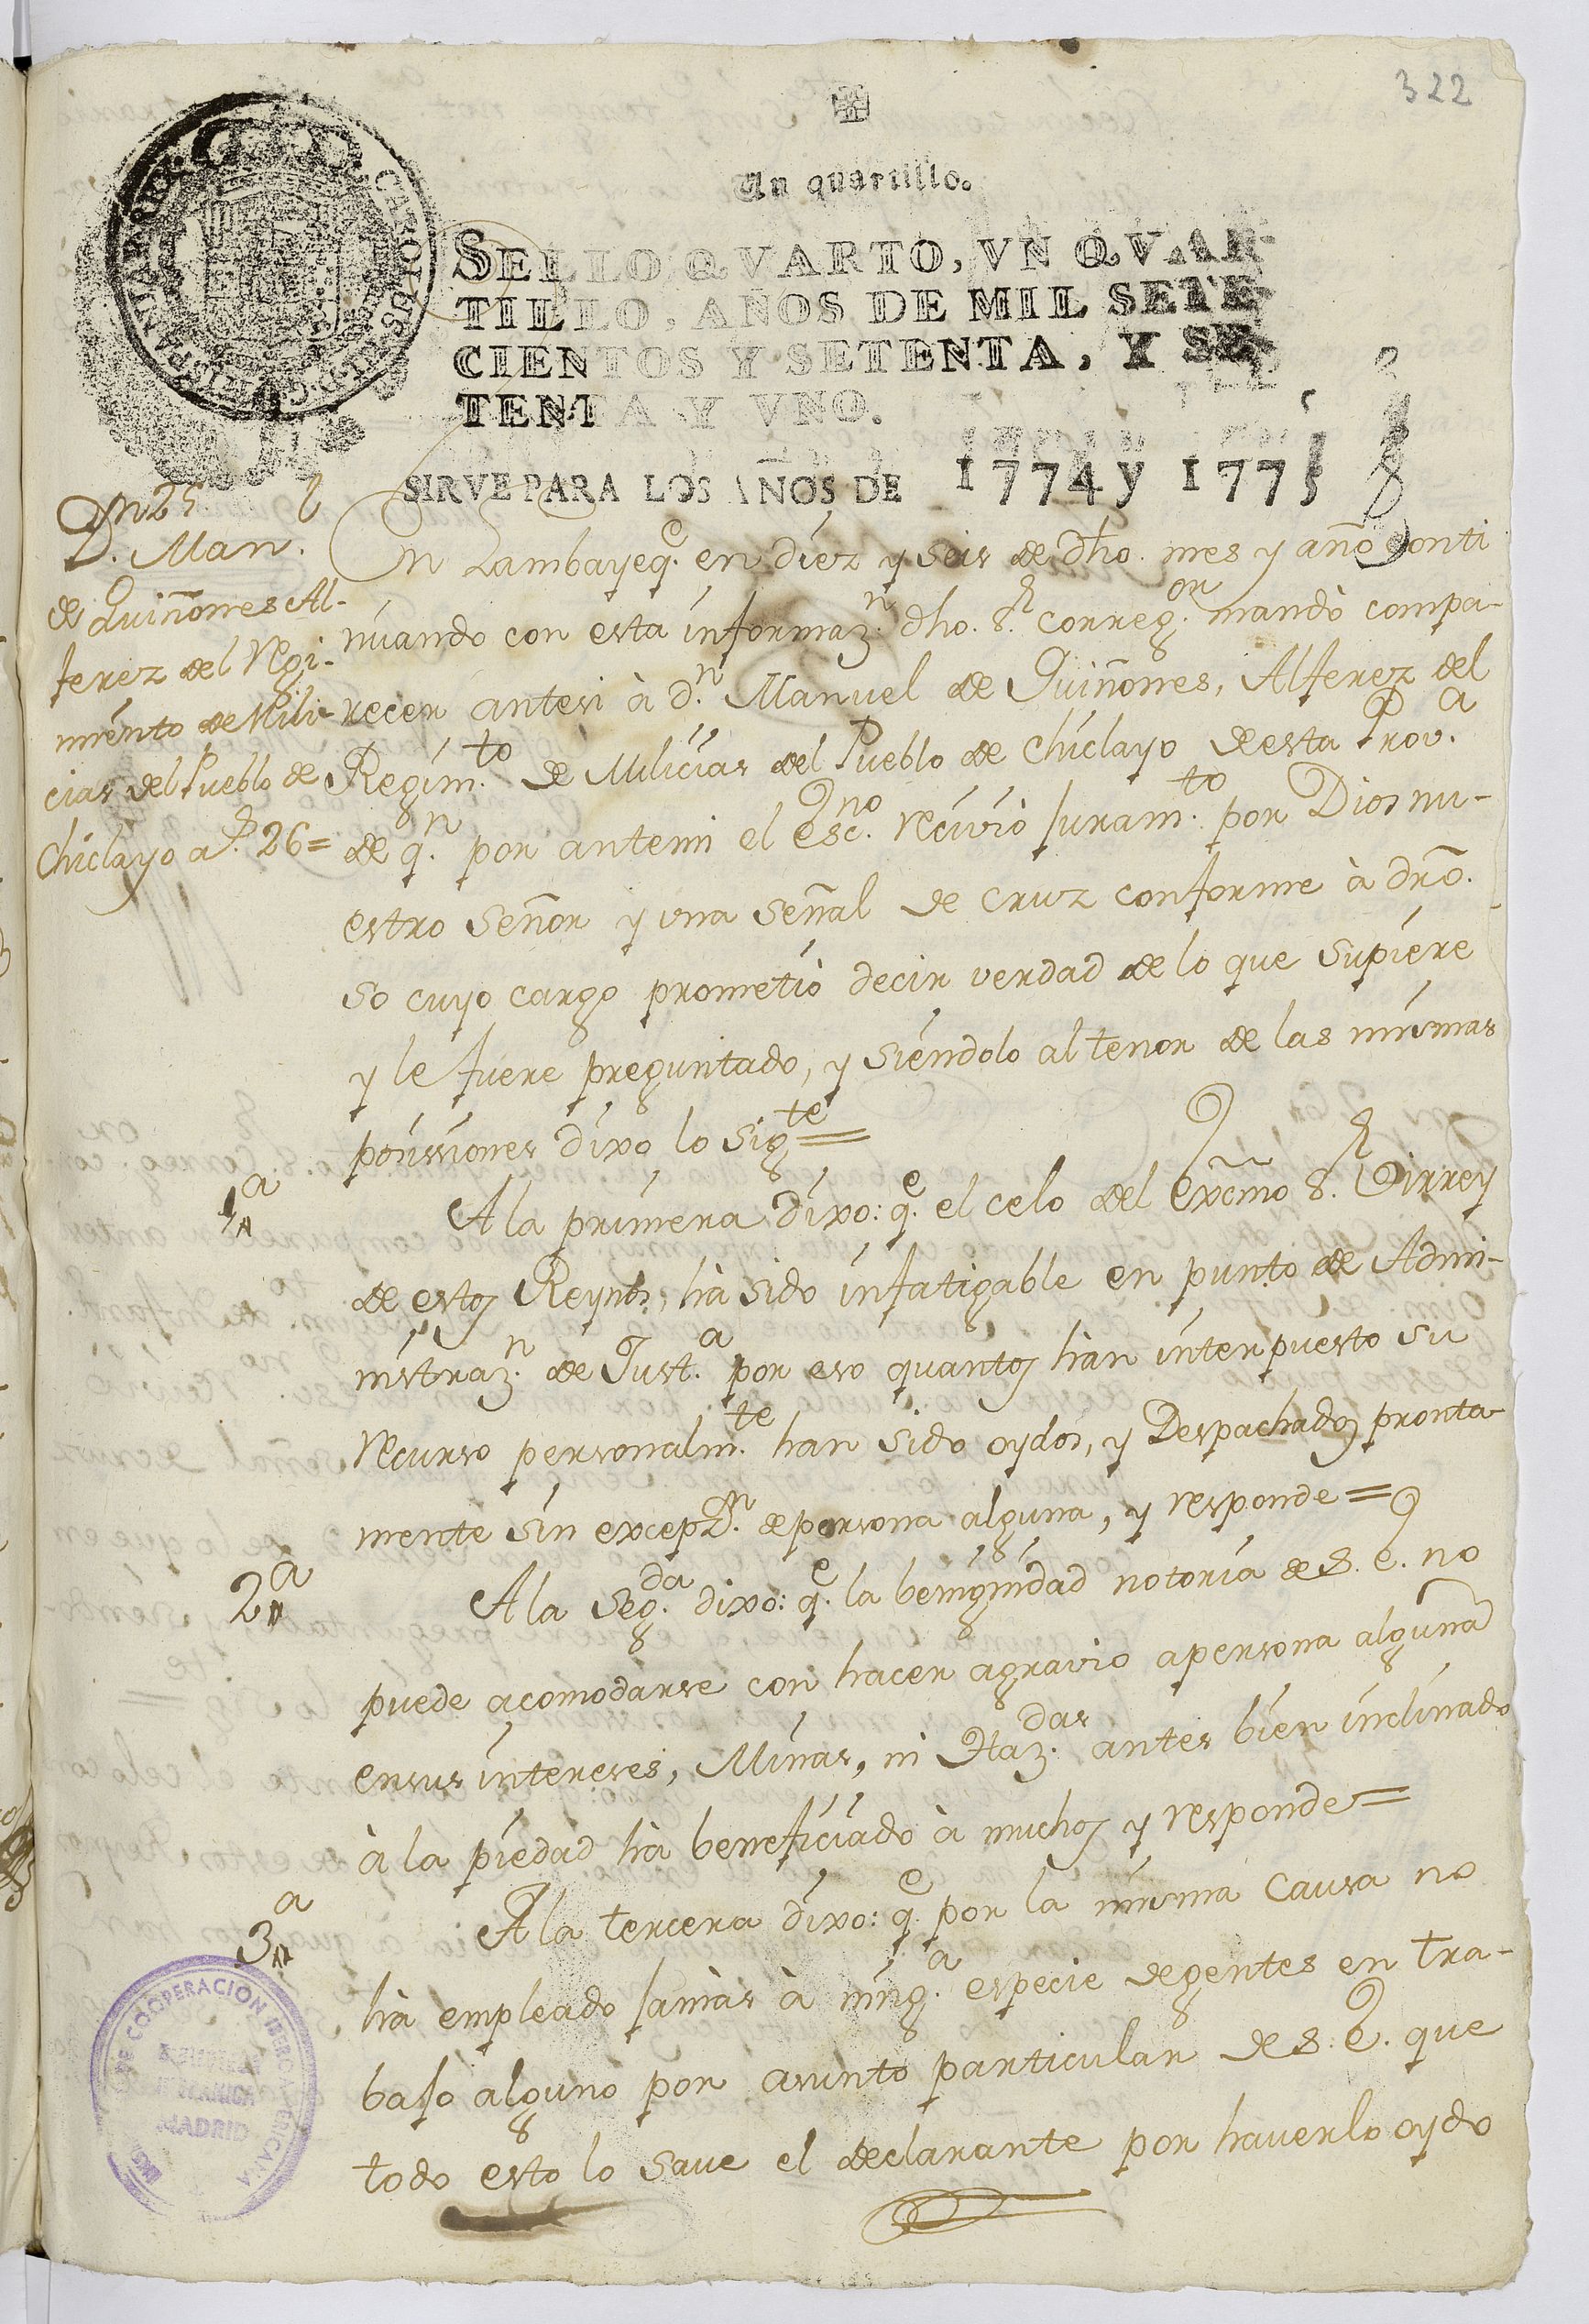 322
Un quartillo.
SELLO QVARTO, VN QVAR-
TILLO, AÑOS DE MIL SETE-
CIENTOS Y SETENTA, Y SE-
TENTA Y VNO.
SIRVE PARA LOS AÑOS DE 1774 y 1775
D. Man.
de Quiñones Al-
ferez del Regi-
miento de Mili-
cias del Pueblo de
Chiclayo a f. 26=
En Lambayeq.e en diez y seis de dho. mes y año conti
nuando con esta informaz.n dho. S.r Correg.or mandò compa-
recer antesi à d.n Manuel de Quiñones, Alferez del
Regim.to de Milicias del Pueblo de Chiclayo de esta Prov.a
de q.n por antemi el Esc.no recivió juram.to por Dios nu-
estro Señor y una Señal de Cruz conforme à dro.
so cuyo cargo prometiò decir verdad de lo que supiere
y le fuere preguntado, y siendolo al tenor de las mismas
posissiones dixo lo sig.te=
1.a A la primera dixo: q.e el celo del Excmo S.r Virrey
de estos Reynos, hà sido infatigable en punto de Admi-
nistraz.n de Just.a por eso quantos hàn interpuesto su
recurso personalm.te han sido oydos, y Despachados pronta-
mente sin excepz.on de persona alguna, y responde=
2.a A la seg.da dixo: q.e la benignidad notoria de S. E. no
puede acomodarse con hacer agravio apersona alguna
ensus intereses, Minas, ni Haz.das antes bien inclinado
à la piedad hà beneficiado à muchos y responde=
3.a A la tercera dixo: q.e por la misma causa no
hà empleado jamàs à ning.a especie degentes en tra-
bajo alguno por asunto particular de S. E. que
todo esto lo save el declarante por haverlo oydo
DE COOPERACION IBEROAMERICANA
MADRID